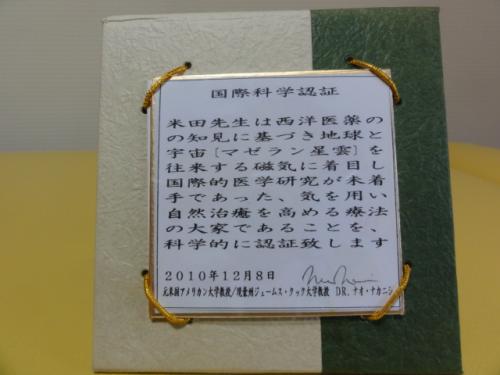 国際科学認証
米田先生は西洋医薬の
の知見に基づき地球と
宇宙[マゼラン星雲]を
往来する磁気に着目し
国際的医学研究が未着
手であった、気を用い
自然治癒を高める療法
の大家であることを、
科学的に認証致します
2010年12月8日
元米国アメリカン大学教授/現豪州ジェームス・クック大学教授 DR. ナオ・ナカニシ